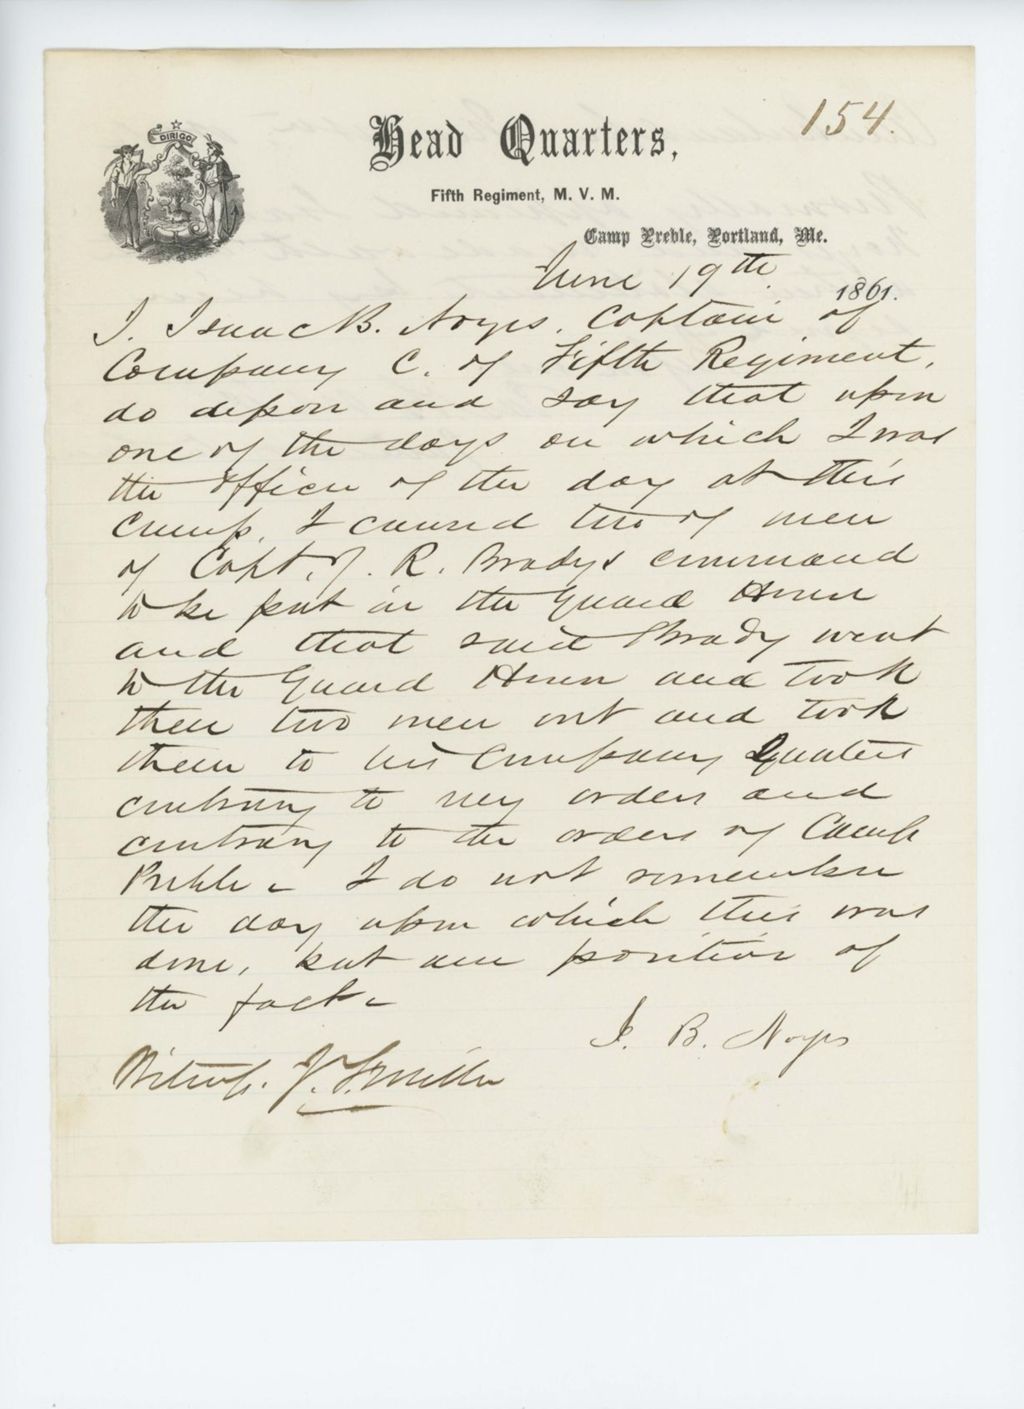 154.
DIRIGO
Head Quarters,
Fifth Regiment, M. V. M.
Camp Preble, Portland, Me.
June 19th 1861.
I. Isaac B. Noyes. Captain of
Company C. of Fifth Regiment,
do depon and say that upon
one of the days on which I was
the officer of the day at this
Camp, I caused two of men
of Capt. J. R. Bradys command
to be put in the Guard House
and that said Brady went
to the Guard House and took
these two men out and took
them to his Company Quaters
contrary to my orders and
contrary to the orders of Camp
Preble - I do not remember
the day upon which this was
done, but am positive of
the fact -
I. B. Noyes
Witness. J.